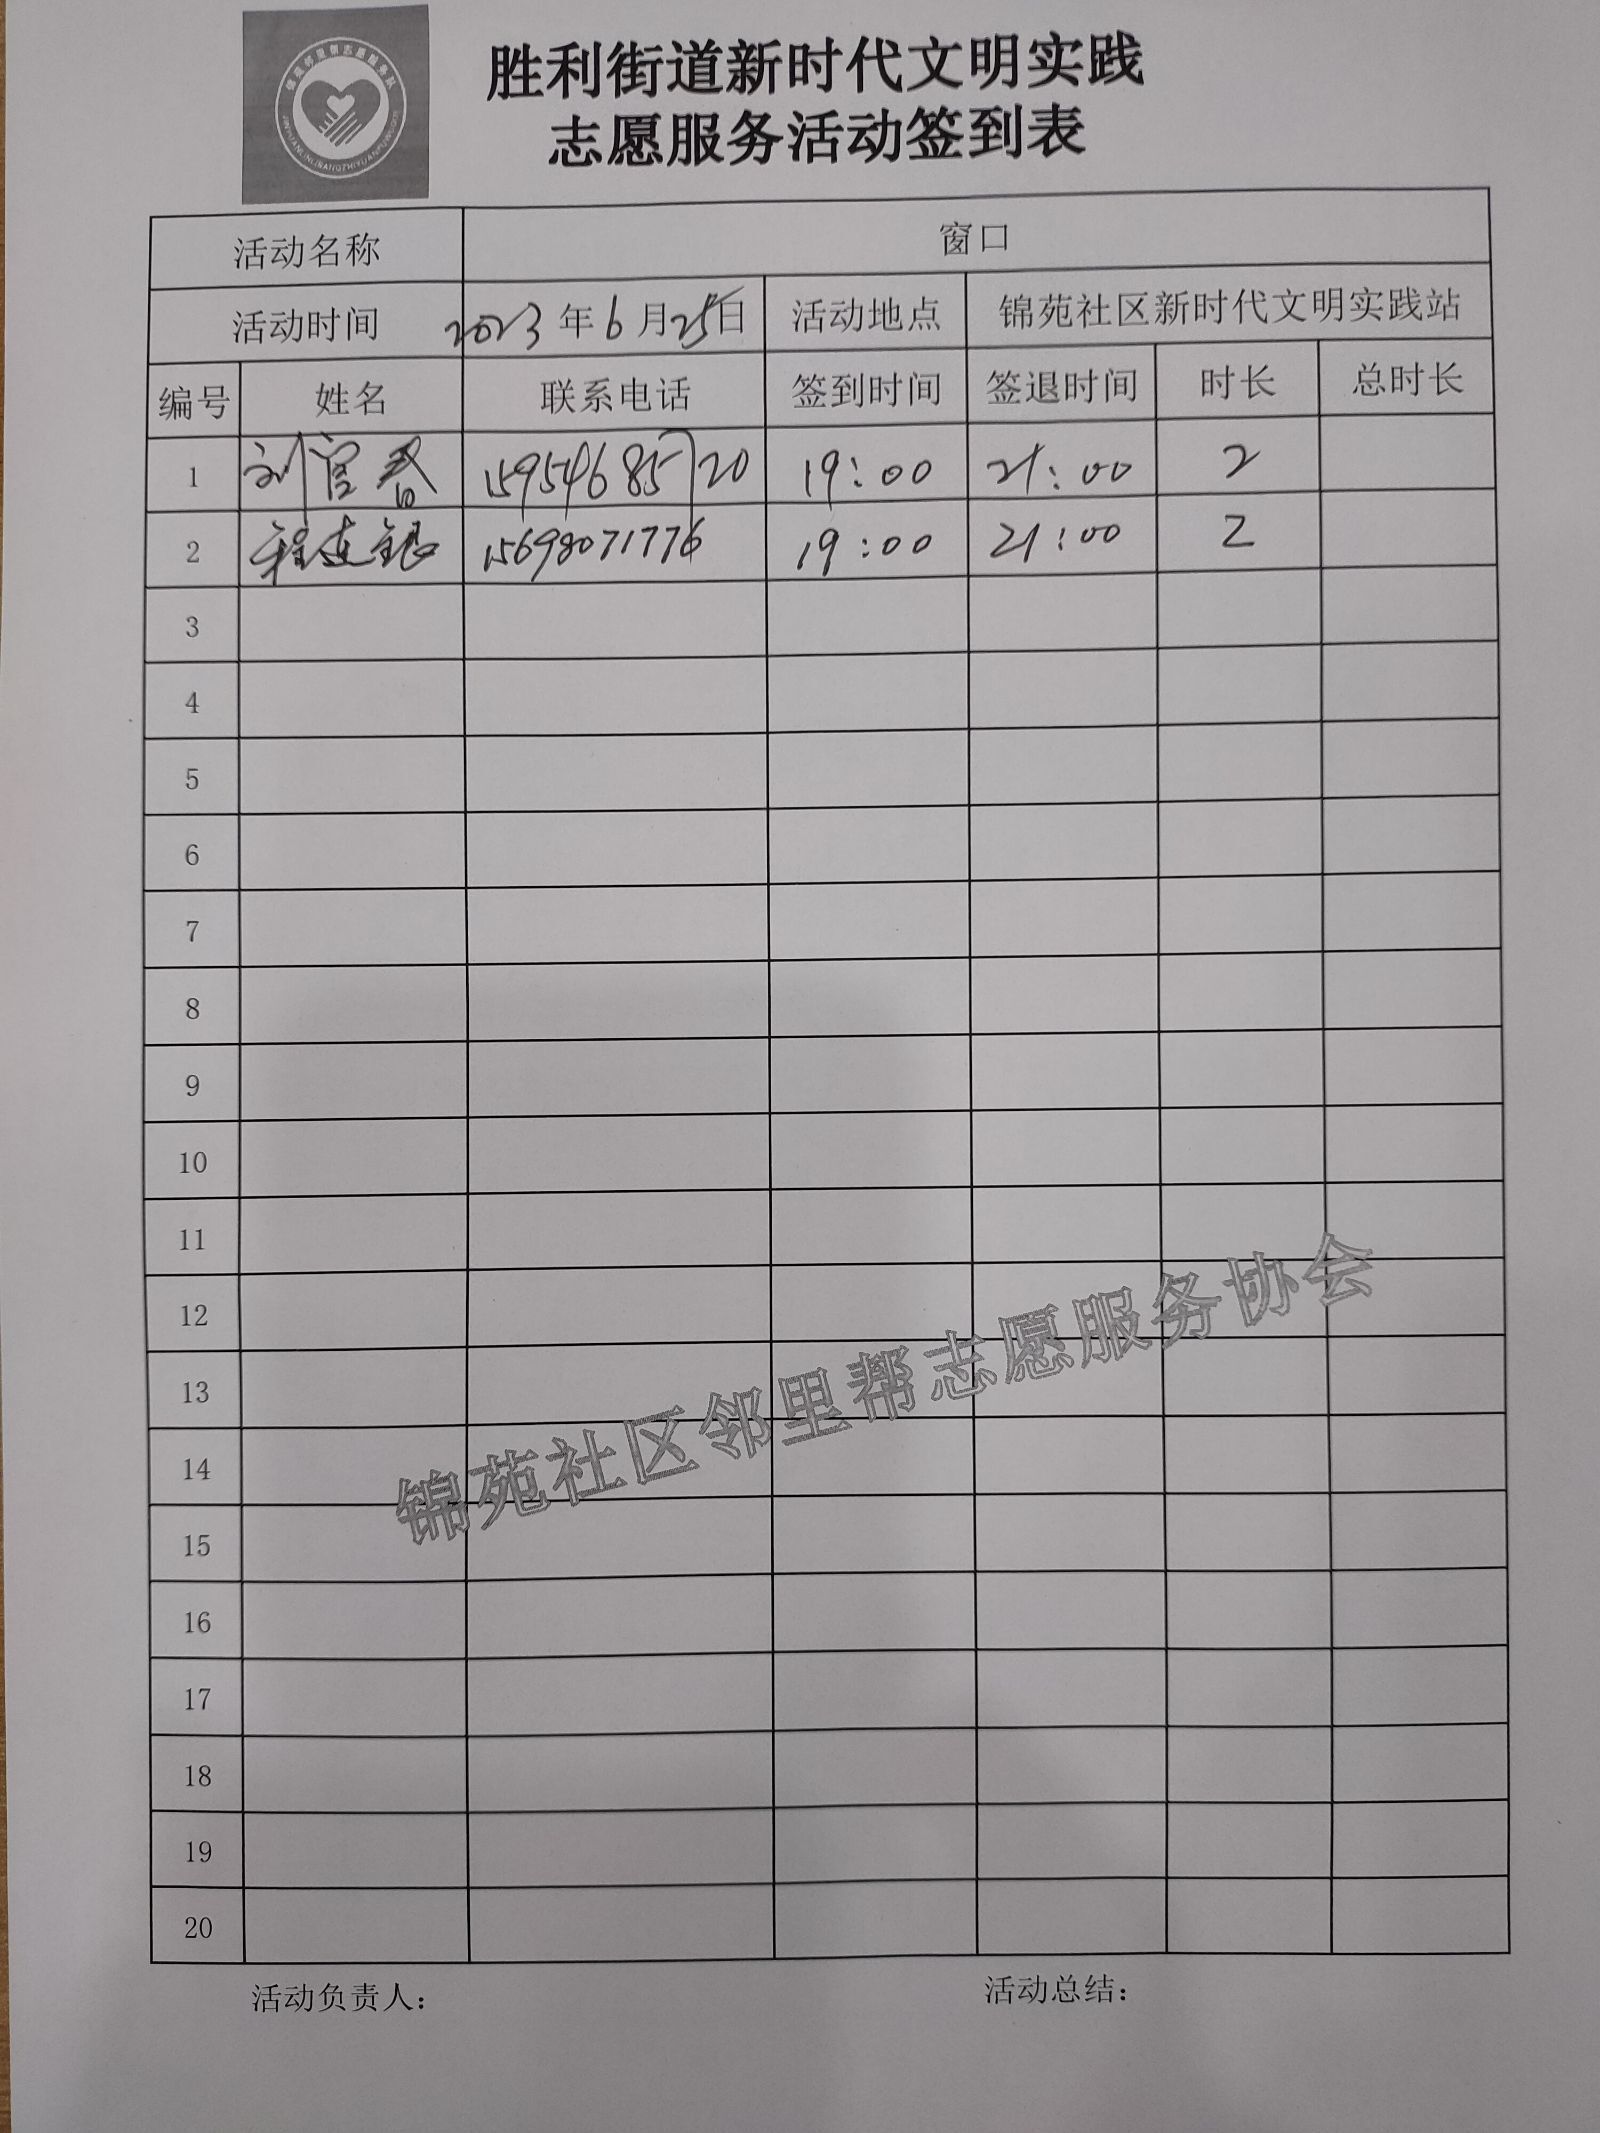 锦苑邻里帮志愿服务队
JINYUANLINLIBANGZHIYUANFUWUDUI
胜利街道新时代文明实践
志愿服务活动签到表
活动名称 窗口
活动时间 2023年6月25日 活动地点 锦苑社区新时代文明实践站
编号 姓名 联系电话 签到时间 签退时间 时长 总时长
1 刘官春 15954685720 19:00 21:00 2
2 程连银 15698071776 19:00 21:00 2
3
4
5
6
7
8
9
10
11
12
13
14
15
16
17
18
19
20
锦苑社区邻里帮志愿服务协会
活动负责人： 活动总结：